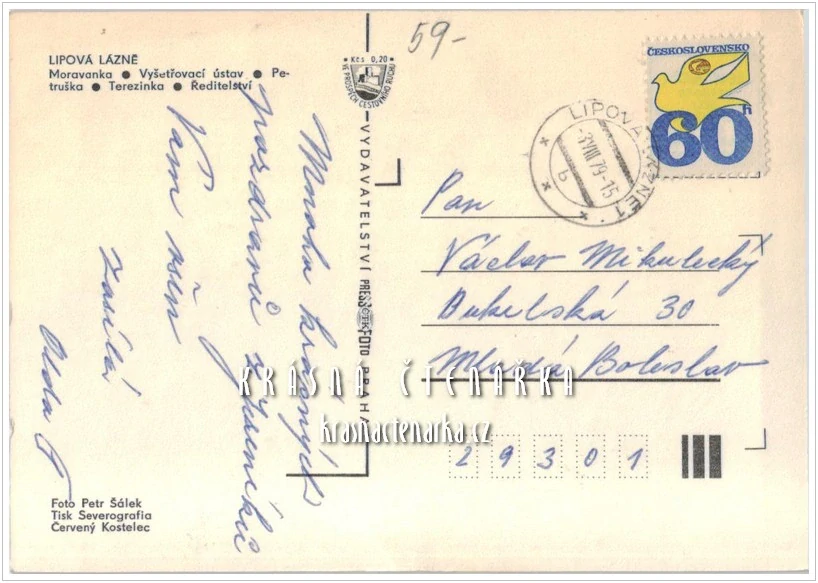 59-
LIPOVÁ LÁZNĚ
Moravanka ● Vyšetřovací ústav ● Pe-
truška ● Terezinka ● Ředitelství
Kčs 0,20
VE PROSPĚCH CESTOVNÍHO RUCHU
VYDAVATELSTVÍ PRESSFOTO PRAHA
ČTK
ČESKOSLOVENSKO
60h
LIPOVÁ LÁZNĚ 1
-3.VIII.79-15
b
Mnoho krásných
pozdravů z Jeseníků
Vám všem
zasílá
Olda
Pan
Václav Mikulecký
Dukelská 30
Mladá Boleslav
29301
KRÁSNÁ ČTENÁŘKA
krasnactenarka.cz
Foto Petr Šálek
Tisk Severografia
Červený Kostelec